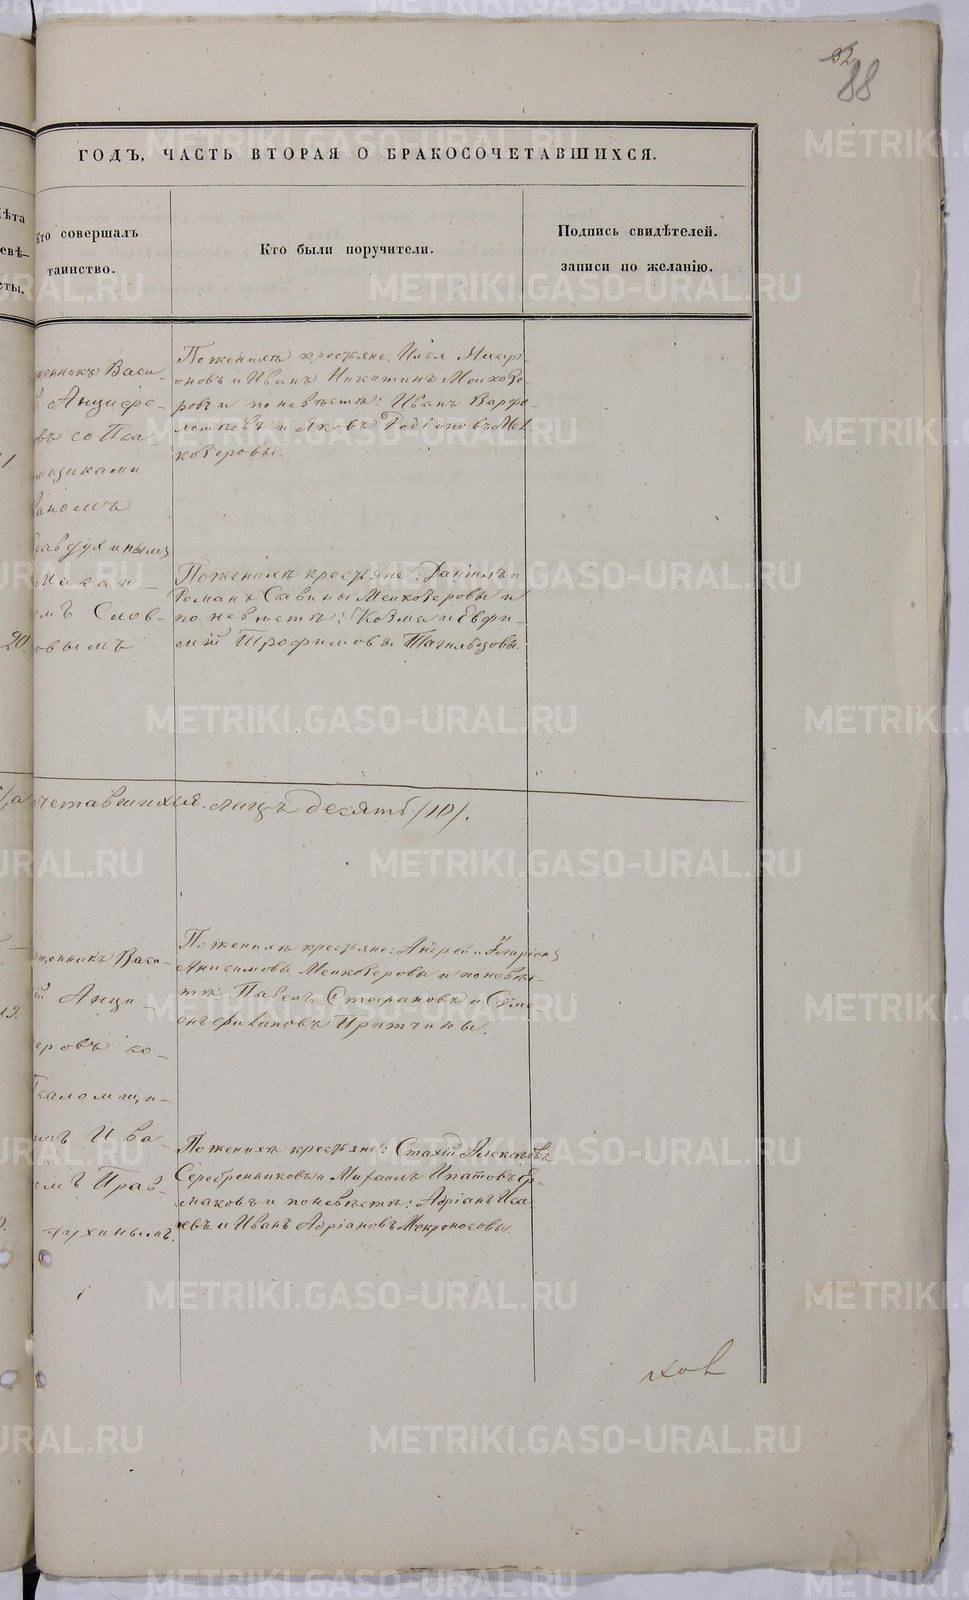 32
88
ГОДЪ, ЧАСТЬ ВТОРАЯ О БРАКОСОЧЕТАВШИХСЯ.
Лѣта
невѣ-
сты.
Кто совершалъ
таинство.
Кто были поручители.
Подпись свидѣтелей.
записи по желанію.
щенникъ Васи-
Анциффе-
овъ со Пса
мщиками
Иваномъ
Правдухинымъ
Мака
емъ Слов-
овымъ
20.
По женихѣ крестьяне: Илья
оновъ и Иванъ Никитинъ Мелкозе-
ровы и по невѣстѣ: Иванъ Варфо-
ломѣевъ и Яковъ Родіоновъ Мел
козеровы.
По женихѣ крестьяне: Даніилъ и
Романъ Савины Мелкозеровы и
по невѣстѣ: Козма и Евфи-
мій Трофимовы Тагильцовы.
четавшихся лицъ десять /10/.
щенникъ Васи-
ій Анци
еровъ со
Псаломщи-
комъ Ива-
омъ Прав-
духинымъ.
19.
По женихѣ крестьяне: Андрей и Иларіонъ
Анисимовы Мелкозеровы и по невѣс-
тѣ: Павелъ Стефановъ и Симе-
онъ Притчины.
По женихѣ крестьяне: Стахій Алексѣевъ
Серебренниковъ и Михаилъ Ипатовъ Ер-
маковъ и по невѣстѣ: Адріанъ Иса
евъ и Иванъ Адріановъ Мокроносовы.
ховъ
METRIKI.GASO-URAL.RU